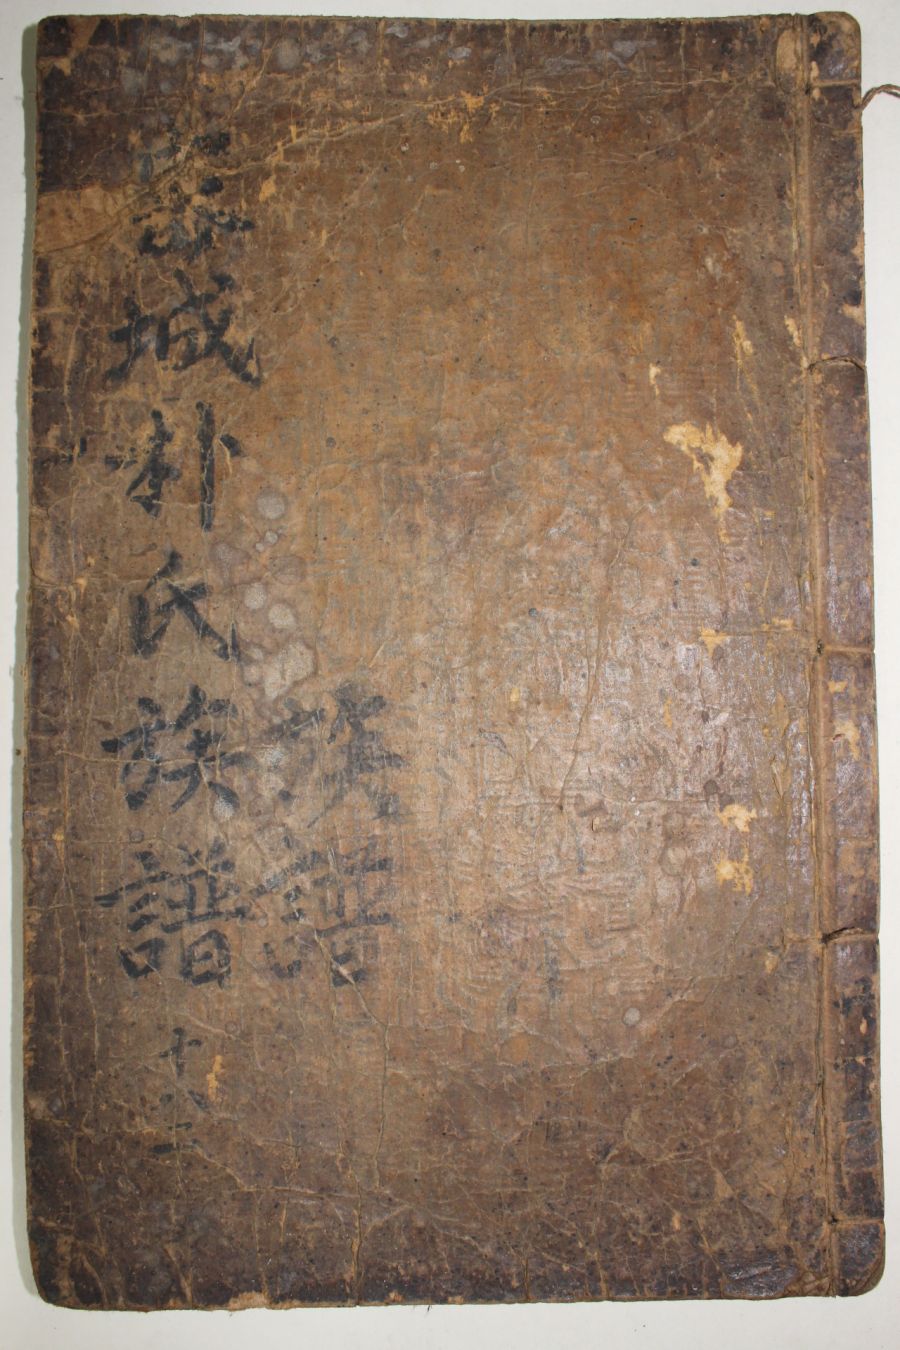 族譜
密城朴氏族譜 十二